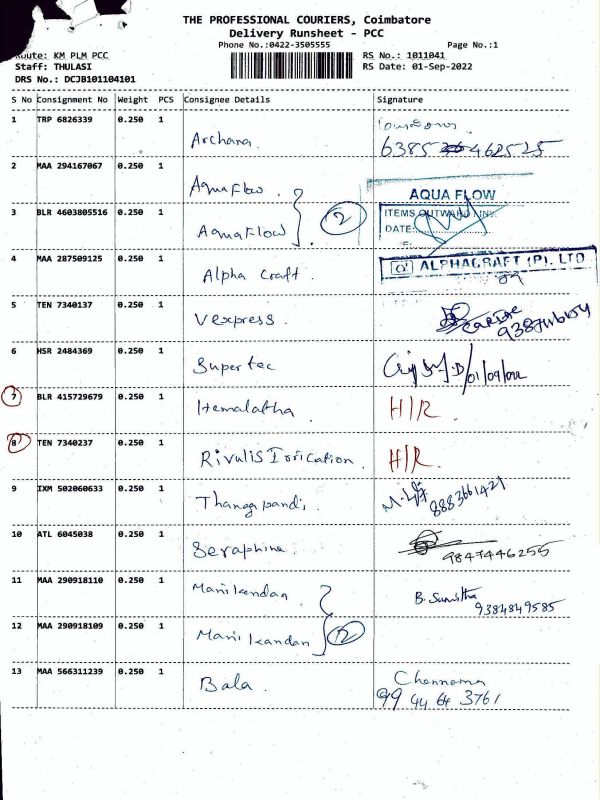 THE PROFESSIONAL COURIERS, Coimbatore
Delivery Runsheet - PCC
Phone No.:0422-3505555 Page No.:1
Route: KM PLM PCC RS No.: 1011041
Staff: THULASI RS Date: 01-Sep-2022
DRS No.: DCJB101104101
S No Consignment No Weight PCS Consignee Details Signature
1 TRP 6826339 0.250 1 Archana
6385 462525
2 MAA 294167067 0.250 1 Aqua Flow. AQUA FLOW
3 BLR 4603805516 0.250 1 Aquaflow. 2 ITEMS OUTWARD
DATE:
4 MAA 287509125 0.250 1 Alpha Craft. ALPHACRAFT (P). LTD
5 TEN 7340137 0.250 1 Vexpress.
6 HSR 2484369 0.250 1 Supertec 01/09/022
7 BLR 415729679 0.250 1 Hemalatha H/R.
8 TEN 7340237 0.250 1 Rivulis Irrication. H/R.
9 IXM 502060633 0.250 1 Thangapandi. 8883661421
10 ATL 6045038 0.250 1 Seraphine. 9847446255
11 MAA 290918110 0.250 1 Manikandan B. Sumitha
9384849585
12 MAA 290918109 0.250 1 Manikandan 2
13 MAA 566311239 0.250 1 Bala. Chennama
99 44 64 3761